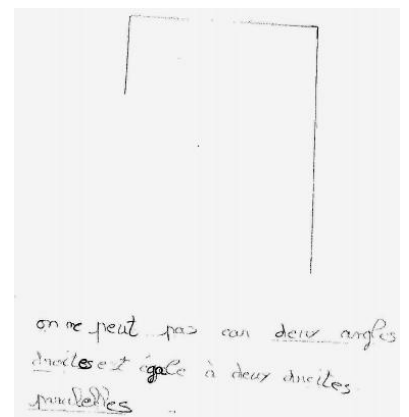 on ne peut pas car deux angles
droites est égale à deux droites
parallelles